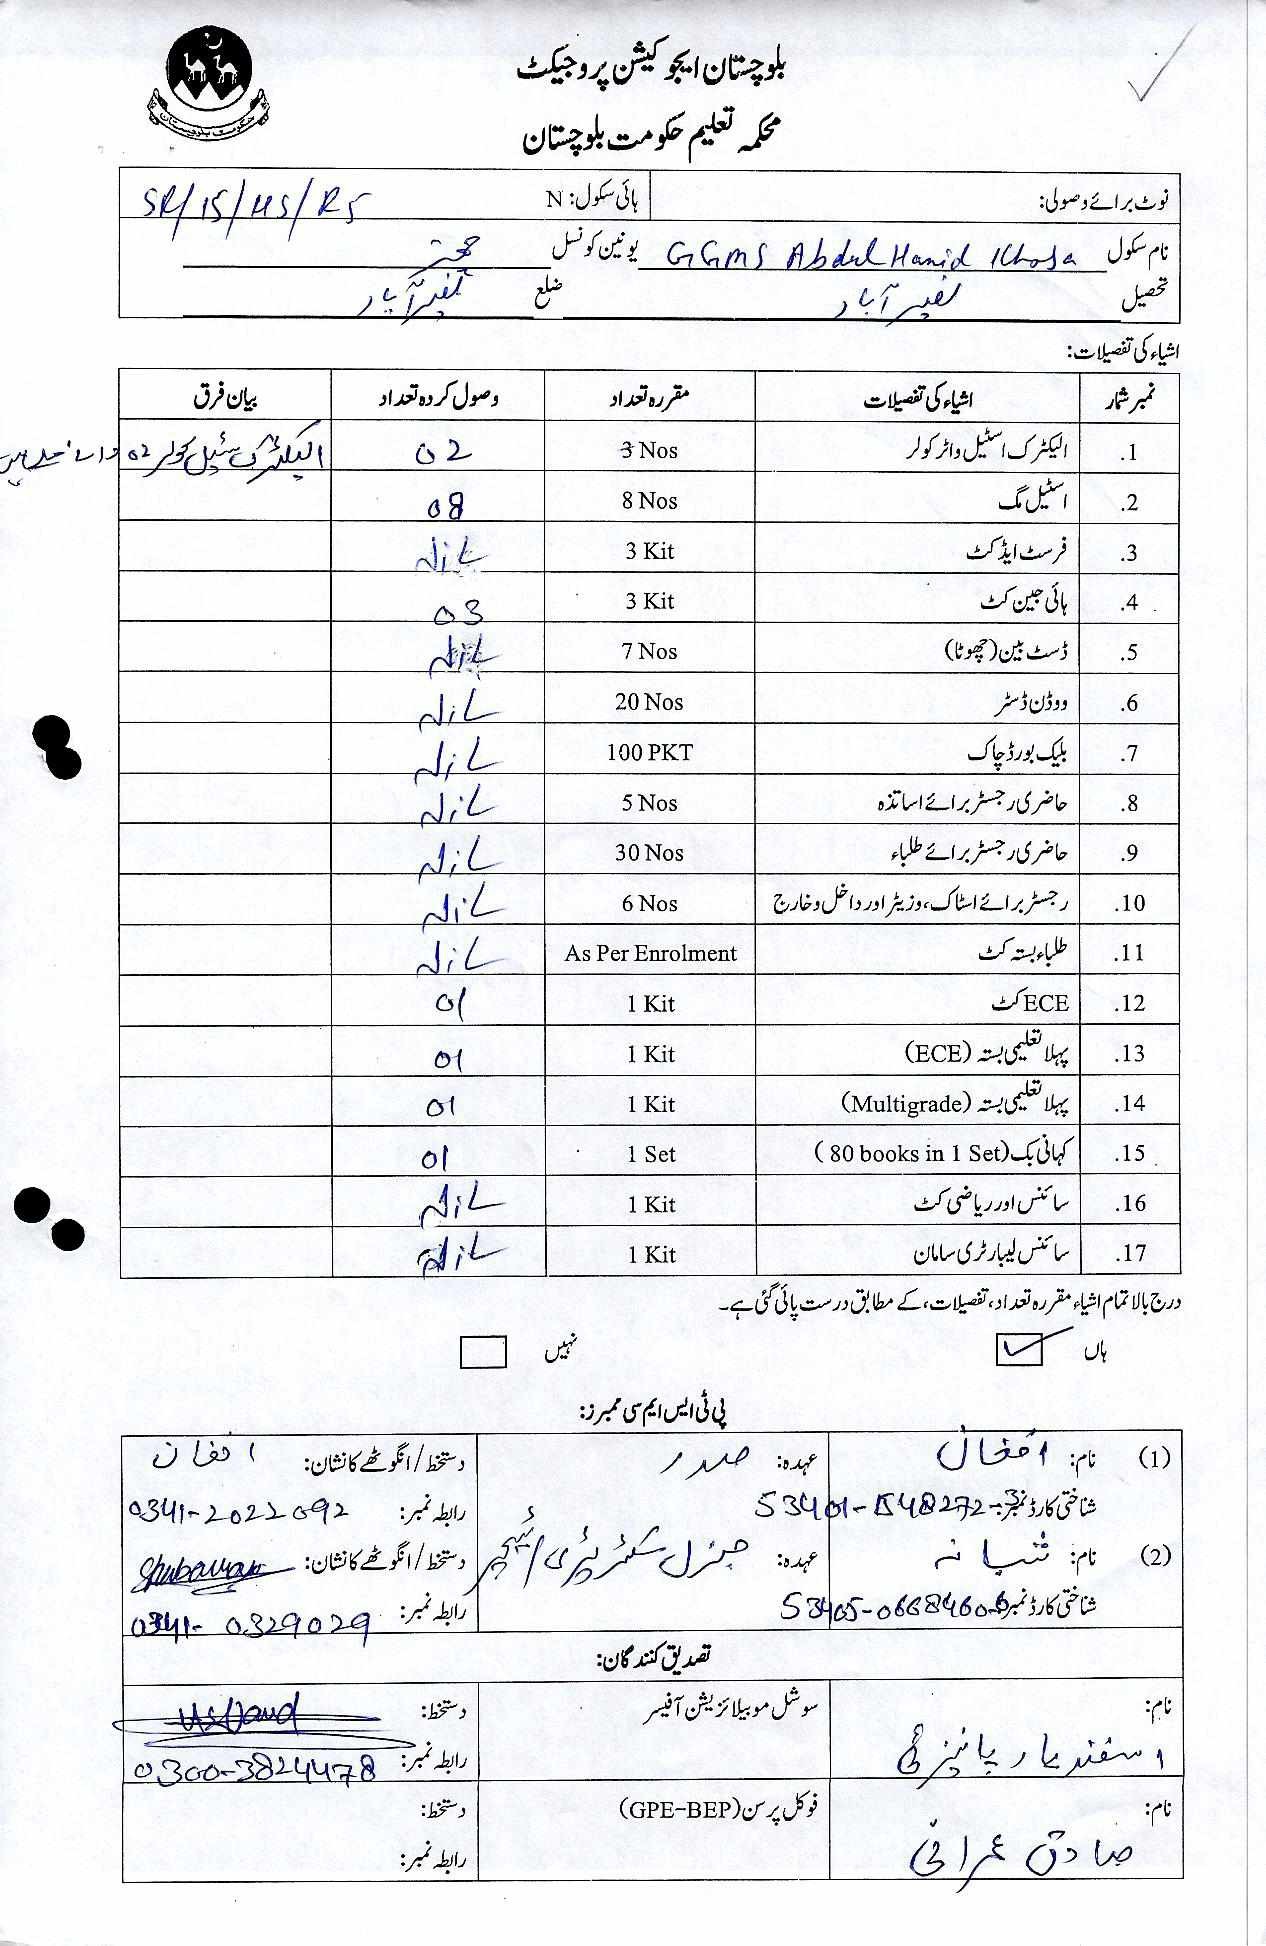 حکومت بلوچستان
بلوچستان ایجوکیشن پروجیکٹ
محکمہ تعلیم حکومت بلوچستان
نوٹ برائے وصولی: ہائی سکول: N SR/15/HS/R5
نام سکول GGMS Abdul Hamid Khosa یونین کونسل
تحصیل نصیر آباد ضلع نصیر آباد
اشیاء کی تفصیلات:
نمبر شمار اشیاء کی تفصیلات مقررہ تعداد وصول کردہ تعداد بیان فرق
1. الیکٹرک اسٹیل واٹر کولر 3 Nos 02 الیکٹرک سٹیل کولر 02
2. اسٹیل مگ 8 Nos 08
3. فرسٹ ایڈ کٹ 3 Kit Nil
4. ہائی جین کٹ 3 Kit 03
5. ڈسٹ بین (چھوٹا) 7 Nos Nil
6. ووڈن ڈسٹر 20 Nos Nil
7. بلیک بورڈ چاک 100 PKT Nil
8. حاضری رجسٹر برائے اساتذہ 5 Nos Nil
9. حاضری رجسٹر برائے طلباء 30 Nos Nil
10. رجسٹر برائے اسٹاک، وزیٹر اور داخل و خارج 6 Nos Nil
11. طلباء بستہ کٹ As Per Enrolment Nil
12. ECE کٹ 1 Kit 01
13. پہلا تعلیمی بستہ (ECE) 1 Kit 01
14. پہلا تعلیمی بستہ (Multigrade) 1 Kit 01
15. کہانی بک (80 books in 1 Set) 1 Set 01
16. سائنس اور ریاضی کٹ 1 Kit Nil
17. سائنس لیبارٹری سامان 1 Kit Nil
درج بالا تمام اشیاء مقررہ تعداد، تفصیلات، کے مطابق درست پائی گئی ہے۔
ہاں نہیں
پی ٹی ایس ایم سی ممبرز:
(1) نام: عہدہ: صدر دستخط/انگوٹھے کا نشان:
شناختی کارڈ نمبر: رابطہ نمبر: 0341-2022092
(2) نام: شبانہ عہدہ: جنرل سیکٹریٹری/ٹیچر دستخط/انگوٹھے کا نشان:
شناختی کارڈ نمبر: 53405-0668460-6 رابطہ نمبر: 0341-0329029
تصدیق کنندگان:
نام: سوشل موبیلائزیشن آفیسر دستخط:
اسفند یار پانیزئی رابطہ نمبر: 0300-3824478
نام: فوکل پرسن (GPE-BEP) دستخط:
صادق عمرانی رابطہ نمبر: